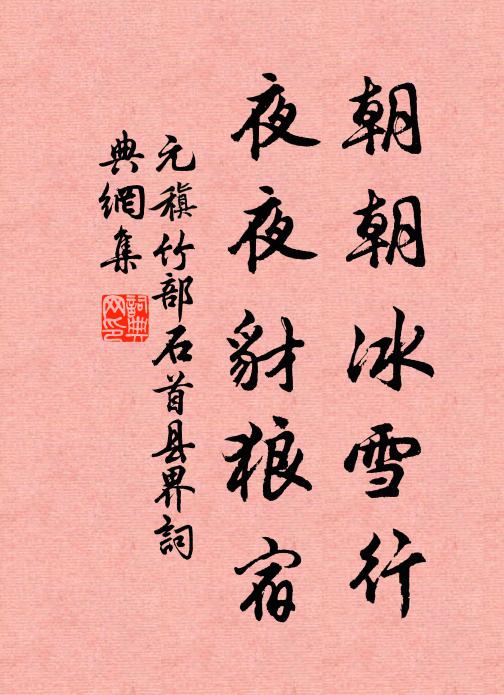 朝朝冰雪行
夜夜豺狼宿
元稹竹部石首县界詞
典網集
詞典
网印